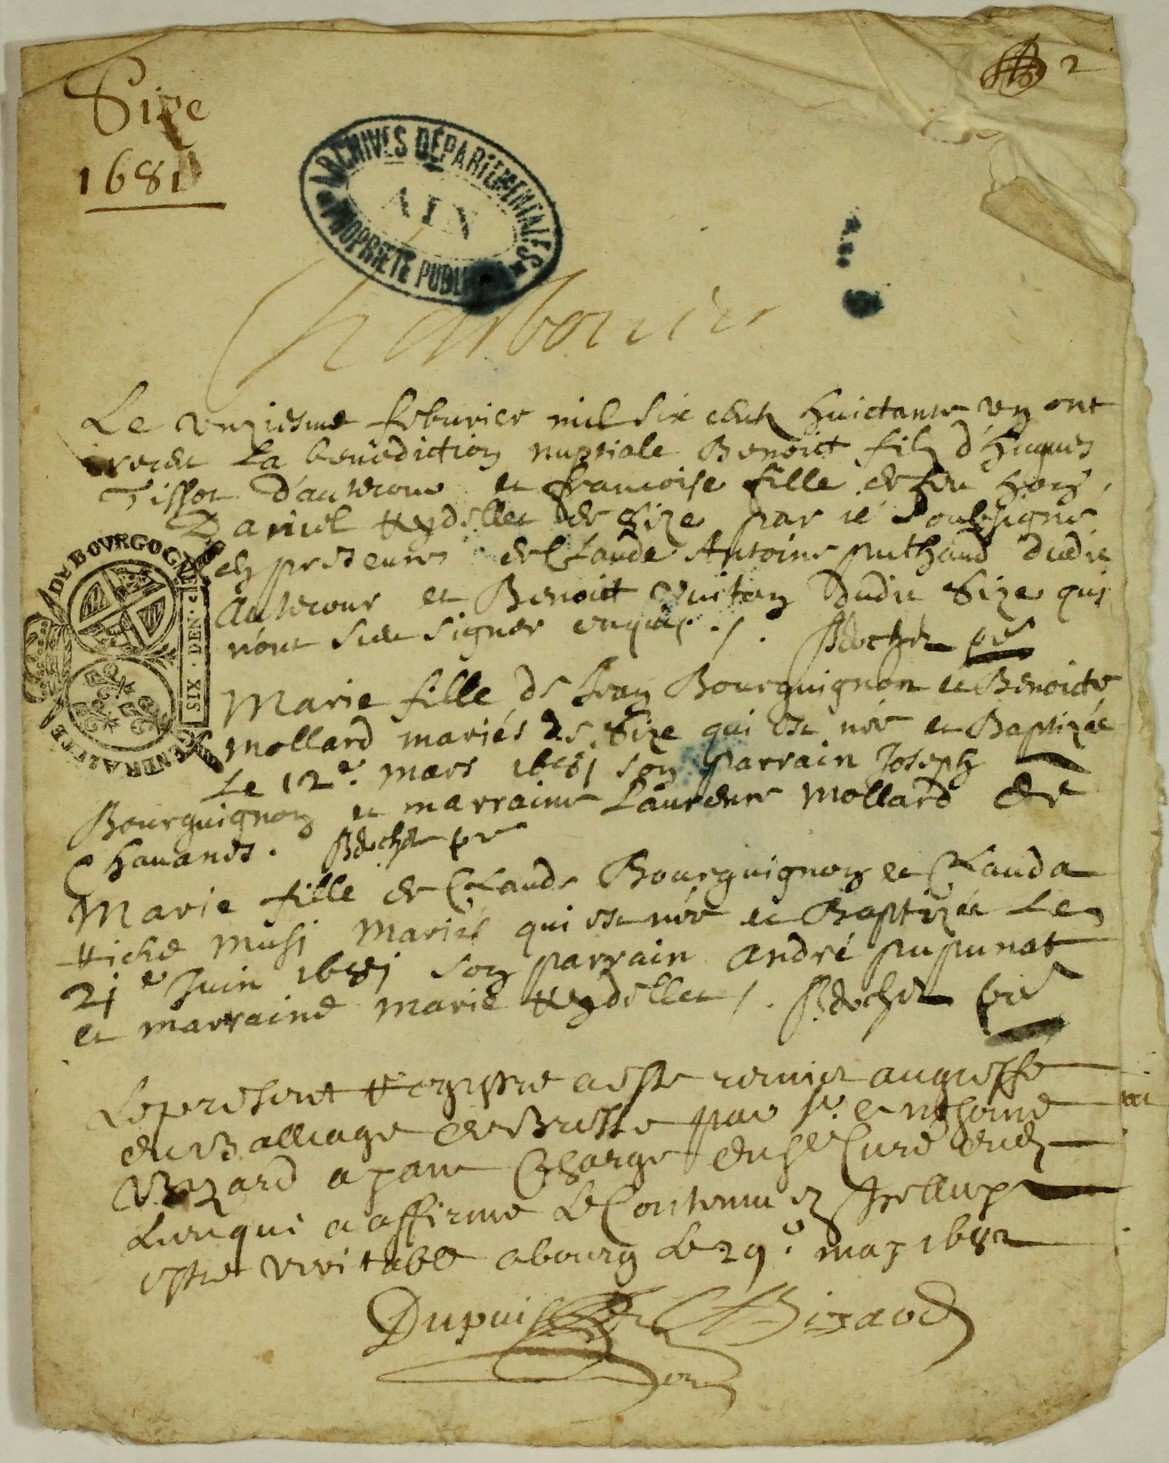 2
Size
1681
ARCHIVES DÉPARTEMENTALES
AIN
PROPRIÉTÉ PUBLIQUE
Charbonier
Le unziesme feburier mil six cent huictante un ont
receu La benediction nuptiale Benoict filz d'hugues
Tissot d'autecour et francoise fille de feu hon.
Daniel Reydellet de Size par ie soubsigne
en presence de Claude Antoine puthaud dudit
Autecour et Benoict Vuiton dudit Size qui
n'ont sceu signer enquis ./.
Marie fille de Jean Bourguignon et Benoicte
Mollard mariés de Size qui est née et Baptizée
Le 12e mars 1681 son parrain Joseph
Bourguignon et marraine Laurence Mollard de
Chavanes.
Marie fille de Claude Bourguignon et Clauda
Musi Mariés qui est née et Baptizée Le
21e Juin 1681 son parrain André pupunat
et marraine Marie Reydellet /.
Le present Registre a esté remis au greffe
du Balliage de Bresse par sr Anthoine
Bizard ayant Charge du sr Curé dud
Lieu qui a affirmé Le Contenu en Icelluy
estre veritable a bourg Le 29e may 1682
Dupuis Bizard
GENERALITE DE BOURGOGNE
SIX · DEN ·